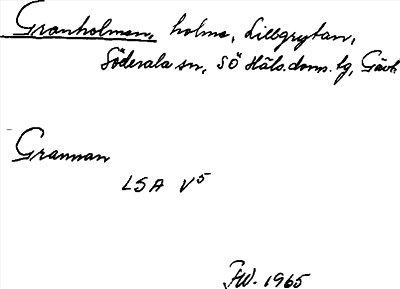 Granholmen, holme, Lillgrytan,
Söderala sn, SÖ Häls. doms. tg, Gävle
Grannan
LSA V5
FW. 1965